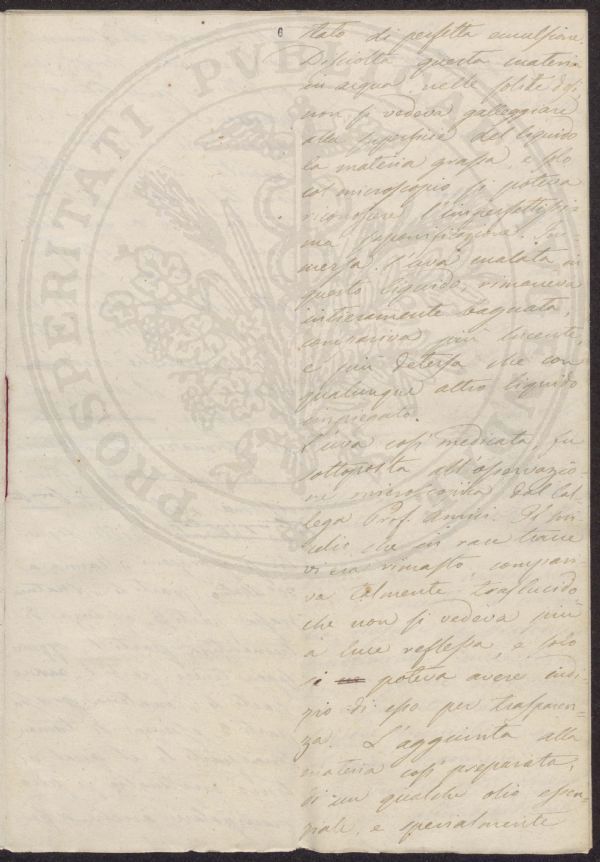 6
stato di perfetta emulsione.
Disciolta questa materia
in acqua, nelle solite dosi
non si vedeva galleggiare
alla superficie del liquido
la materia grassa, e solo
col microscopio si poteva
riconoscere l'imperfettissi
ma saponificazione. Im
mersa l'uva malata in
questo liquido, rimaneva
intieramente bagnata,
compariva più lucente,
e più detersa che con
qualunque altro liquido
impiegato.
L'uva così medicata, fu
sottoposta all'osservazio
ne microscopica dal Col
lega Prof. Amici. Il mi
celio che in rare tracce
vi era rimasto compari
va talmente traslucido
che non si vedeva più
a luce reflessa, e solo
si poteva avere indi
zio di esso per trasparen
za. L'aggiunta alla
materia così preparata,
di un qualche olio essen
ziale, e specialmente
PROSPERITATI PVBLICAE